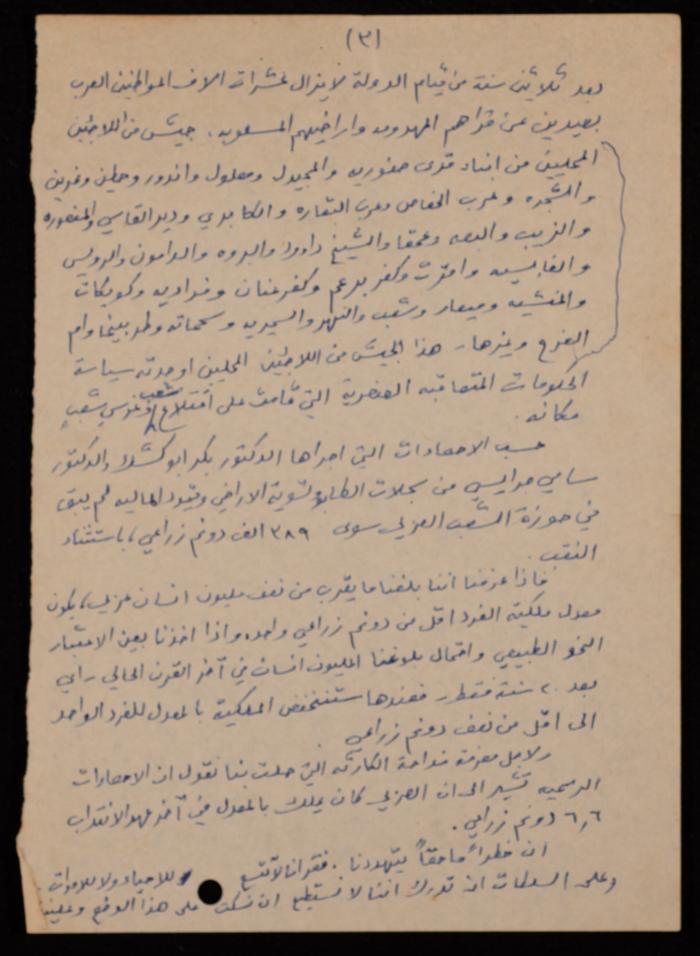 (٣)
بعد ثلاثين سنة من قيام الدولة لا يزال عشرات الاف المواطنين العرب
بعيدين عن قراهم المهدومه واراضيهم المسلوبه. جيش من اللاجئين
المحليين من ابناء قرى صفوريه والمجيدل ومعلول واندور وحطين ونمرين
والشجره وعرب الخفاص وعرب النقاره والكابري ودير القاسي والمنصوره
والزيب والبصه وعمقا والشيخ داوود والبروه والدامون والرويس
والغابسيه واقرث وكفر برعم وكفر عنان وفراديه وكويكات
والمنشيه وميعار وشعب والنهر والسميريه وسحماته وطربيخا وام
الفرج وغيرها. هذا الجيش من اللاجئين المحليين اوجدته سياسة
الحكومات المتعاقبه العنصرية التي قامت على اقتلاع شعب وغرس شعب
مكانه.
حسب الاحصاءات التي اجراها الدكتور بكر ابو كشك والدكتور
سامي جرايسي من سجلات الطابو وتسوية الاراضي وقيود الماليه لم يبق
في حوزة الشعب العربي سوى ٣٨٩ الف دونم زراعي، باستثناء
النقب.
فاذا عرفنا اننا بلغنا ما يقرب من نصف مليون انسان عربي، يكون
معدل ملكية الفرد اقل من دونم زراعي واحد، واذا اخذنا بعين الاعتبار
النمو الطبيعي واحتمال بلوغنا المليون انسان في آخر القرن الحالي - اي
بعد ٢٠ سنة فقط - فعندها ستنخفض الملكية بالمعدل للفرد الواحد
الى اقل من نصف دونم زراعي
ولاجل معرفة فداحة الكارثه التي حلت بنا نقول ان الاحصاءات
الرسميه تشير الى ان العربي كان يملك بالمعدل في آخر عهد الانتداب
٦,٦ دونم زراعي.
ان خطراً ماحقاً يتهددنا. فقرانا لا تتسع للاحياء ولا للاموات
وعلى السلطات ان تدرك اننا لا نستطيع ان نسكت على هذا الوضع وعلينا